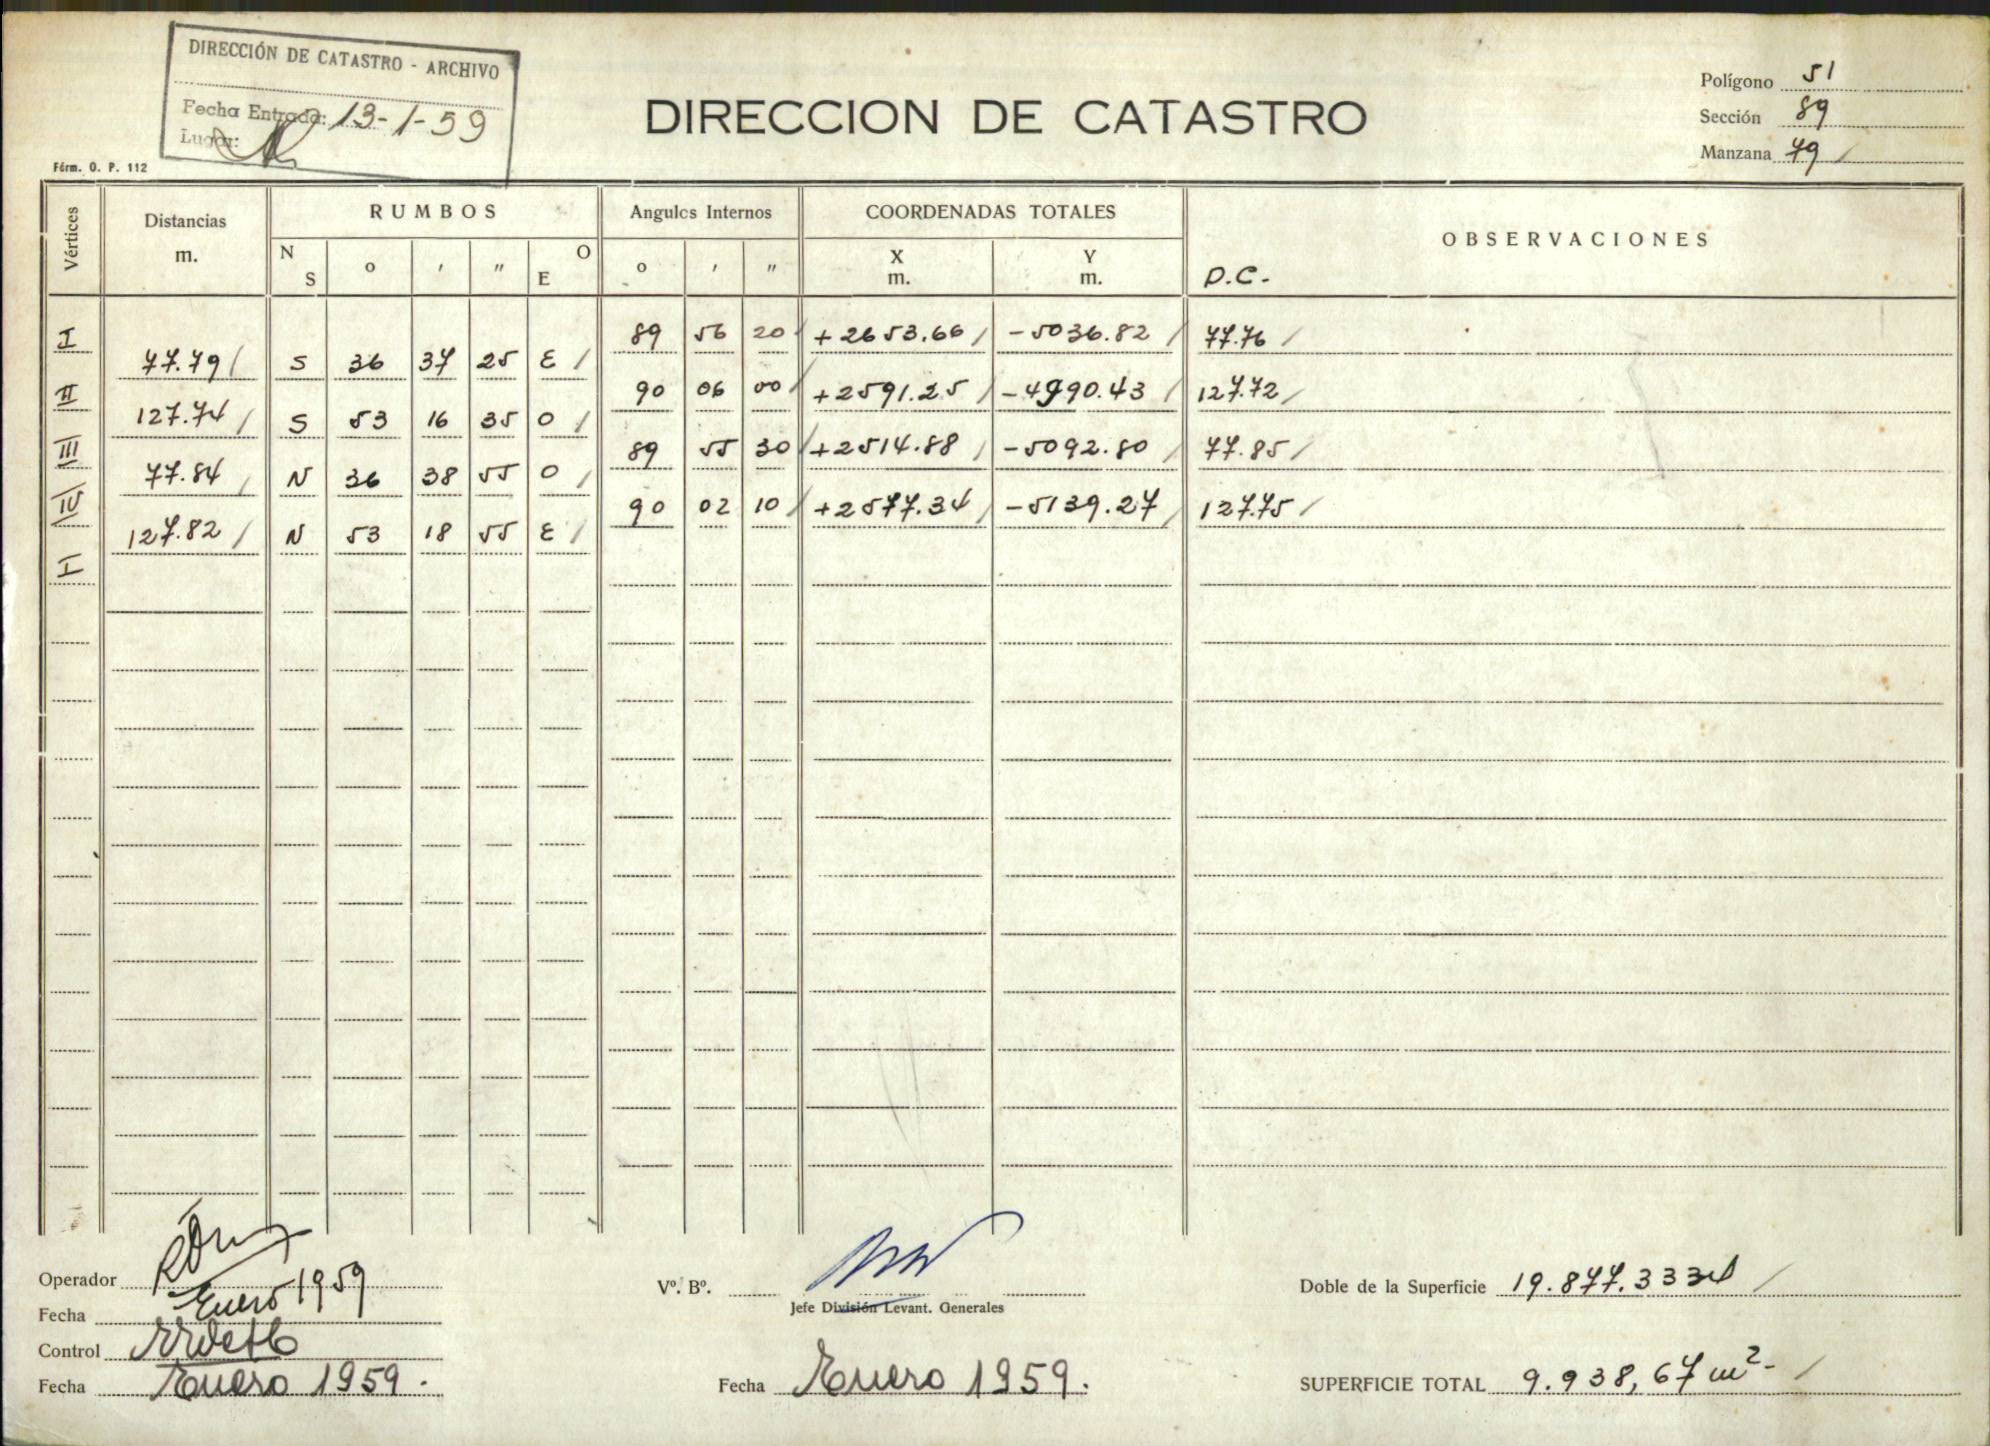 DIRECCIÓN DE CATASTRO - ARCHIVO
Fecha Entrada: 13-1-59
Lugar:
Fórm. O. P. 112
DIRECCION DE CATASTRO
Polígono 51
Sección 89
Manzana 79 /
Vértices Distancias m. RUMBOS Angulos Internos COORDENADAS TOTALES OBSERVACIONES
N S o ' " O E o ' " X m. Y m. D.C.-
I 89 56 20 / +2653.66 / -5036.82 / 77.76 /
77.79 / S 36 37 25 E /
II 90 06 00 / +2591.25 / -4990.43 / 127.72 /
127.74 / S 53 16 35 O /
III 89 55 30 / +2514.88 / -5092.80 / 77.85 /
77.84 / N 36 38 55 O /
IV 90 02 10 / +2577.34 / -5139.27 / 127.75 /
127.82 / N 53 18 55 E /
I
Operador
Fecha Enero 1959
Control
Fecha Enero 1959.
Vº. Bº.
Jefe División Levant. Generales
Fecha Enero 1959.
Doble de la Superficie 19.877.3334 /
SUPERFICIE TOTAL 9.938,67 m2- /